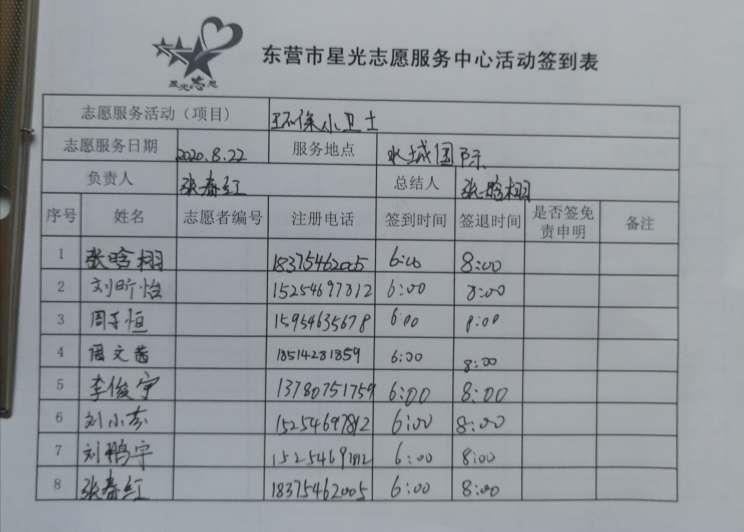 星光志愿
东营市星光志愿服务中心活动签到表
志愿服务活动（项目） 环保小卫士
志愿服务日期 2020.8.22 服务地点 水城国际
负责人 张春红 总结人 张晗栩
序号 姓名 志愿者编号 注册电话 签到时间 签退时间 是否签免责申明 备注
1 张晗栩 18375462005 6:00 8:00
2 刘昕怡 15254697812 6:00 8:00
3 周子恒 15954635678 6:00 8:00
4 文茜 18514281859 6:00 8:00
5 李俊宇 13780751759 6:00 8:00
6 刘小东 15254697812 6:00 8:00
7 刘鹏宇 15254691812 6:00 8:00
8 张春红 18375462005 6:00 8:00